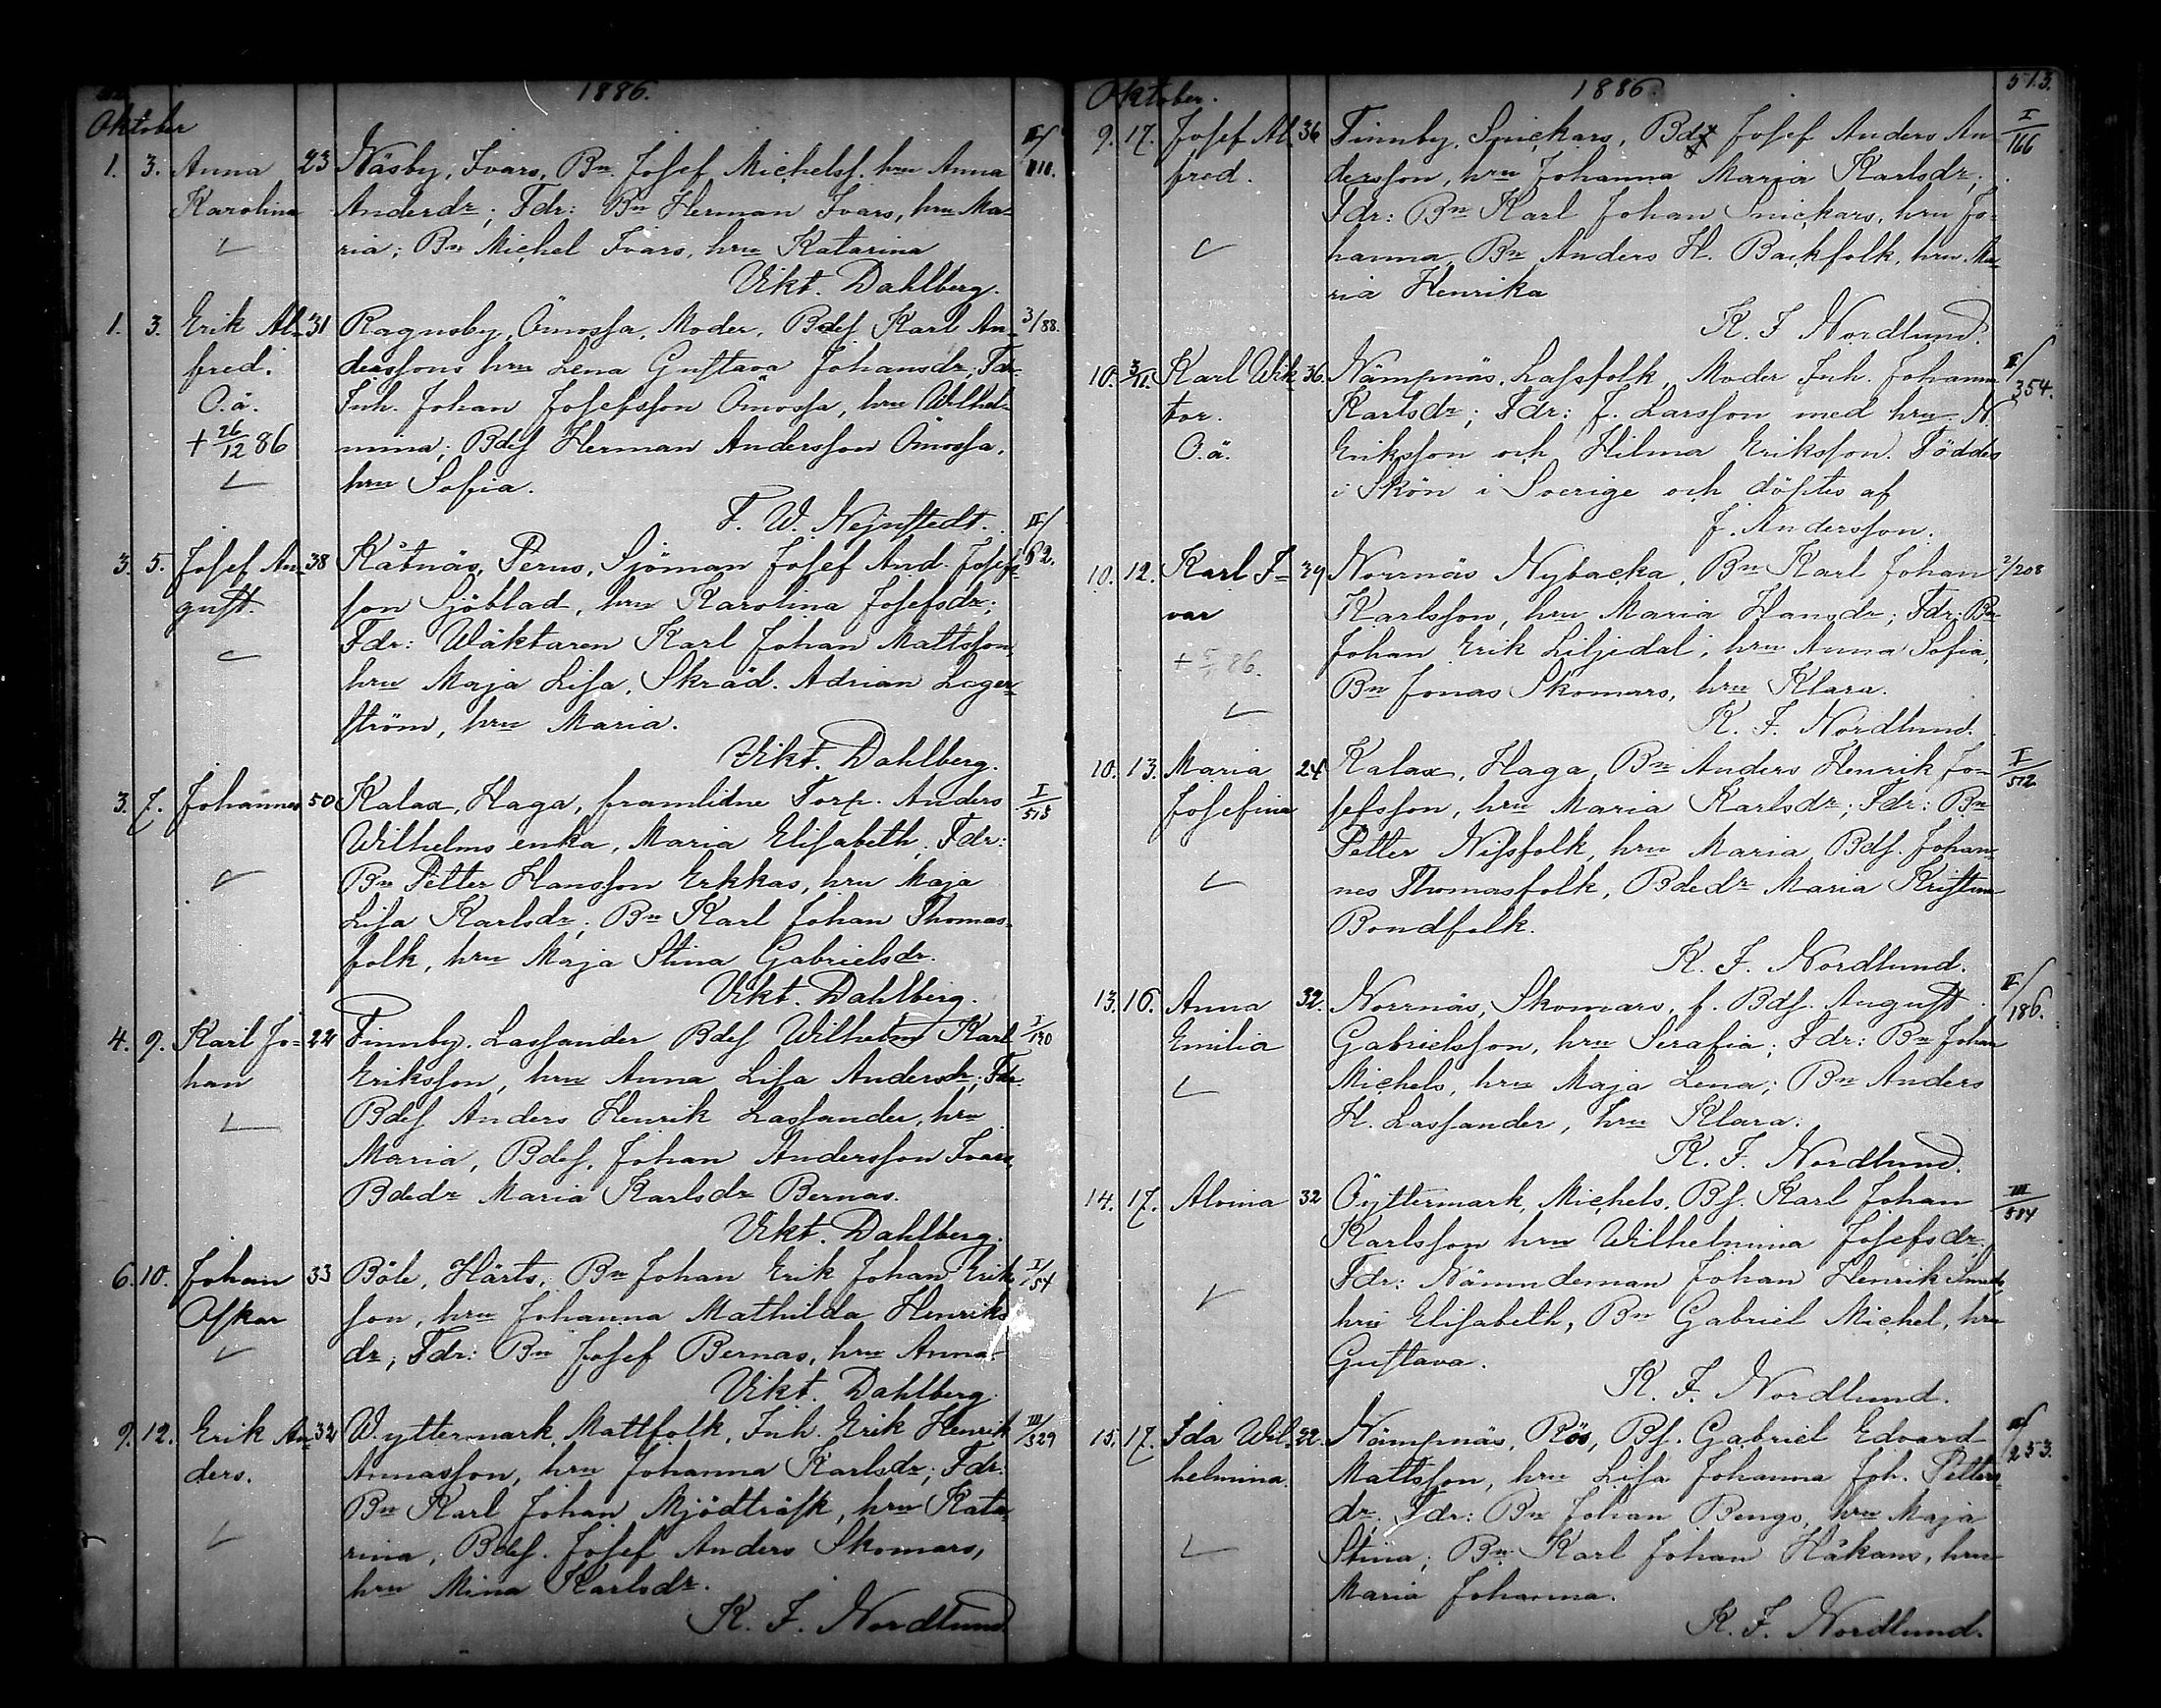 1886.
Oktober
1. 3. Anna 23 Näsby, Ivars, Bn Josef Michelss. hru Anna II/110.
Karolina Andersdr; Fdr: Bn Herman Ivars, hru Ma-
ria; Bn Michel Ivars, hru Katarina
Vikt. Dahlberg.
1. 3. Erik Al- 31 Ragnsby, Ömossa, Moder, Bdes Karl An- 3/88.
fred. derssons hru Lena Gustava Johansdr; Fdr
O.ä. Inh. Johan Josefsson Ömossa, hru Wilhel-
+ 26/12 86 mina; Bdes Herman Andersson Ömossa,
hru Sofia.
F. W. Nejnstedt.
3. 5. Josef Au- 38 Kåtnäs, Perus, Sjöman Josef And. Josefs- II/62.
gust. son Sjöblad, hru Karolina Josefsdr;
Fdr: Wäktaren Karl Johan Mattsson,
hru Maja Lisa, Skräd. Adrian Lager-
ström, hru Maria.
Vikt. Dahlberg.
3. 7. Johannes 50 Kalax, Haga, framlidne Torp. Anders I/515
Wilhelms enka, Maria Elisabeth; Fdr:
Bn Petter Hansson Erkkas, hru Maja
Lisa Karlsdr; Bn Karl Johan Thomas-
folk, hru Maja Stina Gabrielsdr.
Vikt. Dahlberg.
4. 9. Karl Jo- 22 Finnby. Lassander Bdes Wilhelm Karl I/130
han Eriksson, hru Anna Lisa Andersdr; Fdr.
Bdes Anders Henrik Lassander, hru
Maria, Bdes. Johan Andersson Ivars,
Bdedr Maria Karlsdr Bernas.
Vikt. Dahlberg.
6. 10. Johan 33 Böle, Härts, Bn Johan Erik Johan Eriks- I/54
Oskar son, hru Johanna Mathilda Henriks
dr; Fdr: Bn Josef Bernas, hru Anna
Vikt. Dahlberg.
9. 12. Erik An- 32 W. yttermark, Mattfolk, Inh. Erik Henrik III/329
ders. Annasson, hru Johanna Karlsdr; Fdr:
Bn Karl Johan Mjödträsk, hru Kata-
rina, Bdes. Josef Anders Skomars,
hru Mina Karlsdr.
K. F. Nordlund
Oktober. 1886. 513.
9. 17. Josef Al- 36 Finnby, Snickars, Bd Josef Anders An I/166
fred. dersson, hru Johanna Maria Karlsdr;
Fdr: Bn Karl Johan Snickars, hru Jo-
hanna, Bn Anders H. Backfolk, hru Ma-
ria Henrika
K. F. Nordlund.
10. 3/11. Karl Wik- 36. Nämpnäs, Lassfolk, Moder Inh. Johanna II/354.
tor. Karlsdr; Fdr: J. Larsson med hru N.
O.ä. Eriksson och Hilma Eriksson. Föddes
i Skön i Sverige och döptes af
J. Andersson.
10. 12. Karl I- 39 Norrnäs Nybacka, Bn Karl Johan 2/208
var Karlsson, hru Maria Hansdr; Fdr: Bn
Johan Erik Liljedal, hru Anna Sofia,
Bn Jonas Skomars, hru Klara.
K. F. Nordlund.
10. 13. Maria 24 Kalax, Haga, Bn Anders Henrik Jo- I/512
Josefina sefsson, hru Maria Karlsdr; Fdr: Bn
Petter Nissfolk, hru Maria, Bds. Johan-
nes Thomasfolk, Bdedr Maria Kristina
Bondfolk.
K. F. Nordlund.
13. 16. Anna 32. Norrnäs, Skomars, f. Bds. August II/186.
Emilia Gabrielsson, hru Serafia; Fdr: Bn Johan
Michels, hru Maja Lena; Bn Anders
H. Lassander, hru Klara.
K. F. Nordlund.
14. 17. Alonia 32 Öyttermark, Michels, Bs. Karl Johan III/584
Karlsson hru Wilhelmina Josefsdr,
Fdr: Nämndeman Johan Henrik Smeds,
hru Elisabeth, Bn Gabriel Michel, hru
Gustava.
K. F. Nordlund.
15. 17. Ida Wil- 22. Nämpnäs, Rös, Bs. Gabriel Edvard II/253.
helmina. Mattsson, hru Lisa Johanna Joh. Petters-
dr; Fdr: Bn Johan Bengs, hru Maja
Stina; Bn Karl Johan Håkans, hru
Maria Johanna.
K. F. Nordlund.